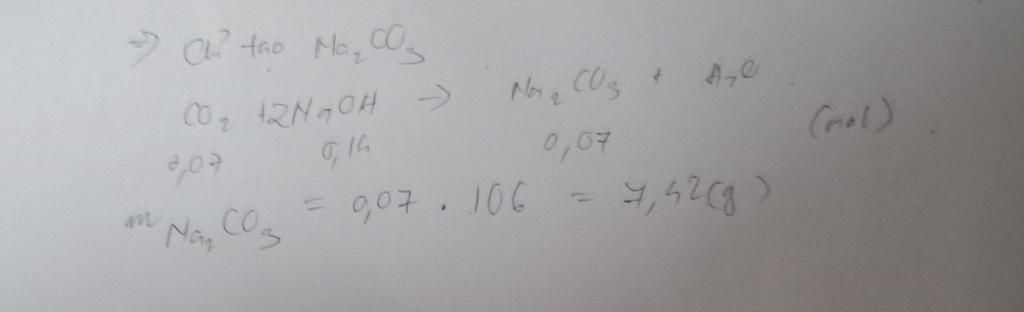 => Chỉ tạo Na₂CO₃
CO₂ + 2NaOH → Na₂CO₃ + H₂O
0,07 0,14 0,07 (mol)
m Na₂CO₃ = 0,07 . 106 = 7,42 (g)